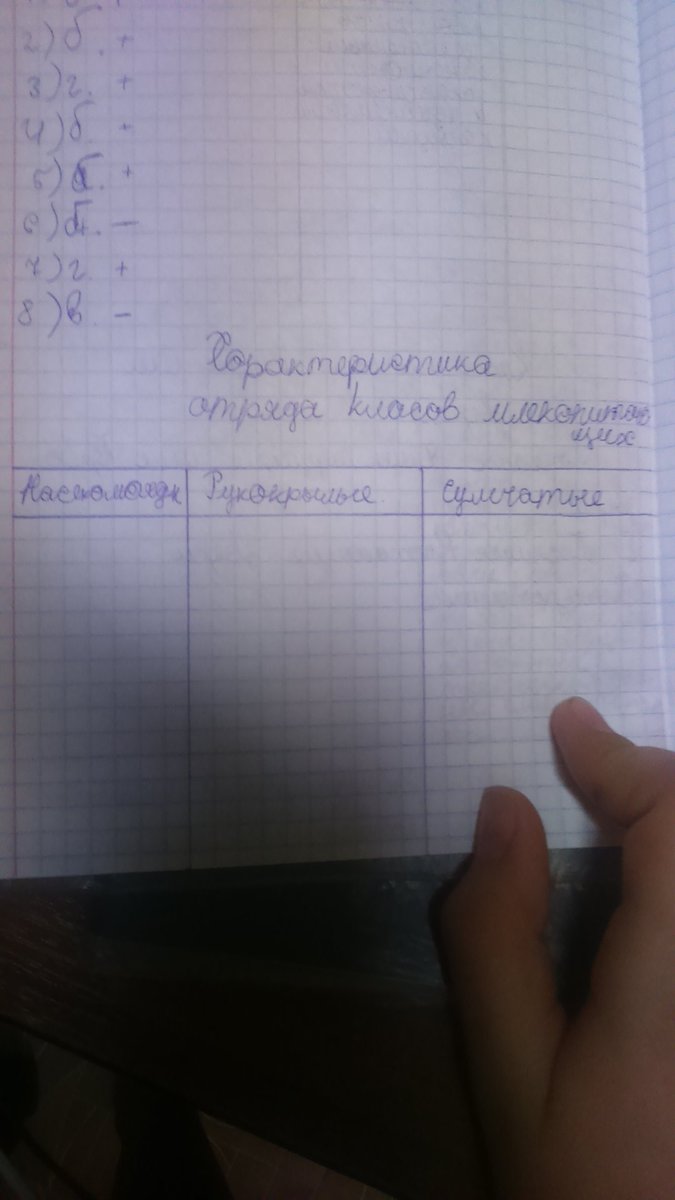 2) б. +
3) г. +
4) б. +
5) б. +
6) б. —
7) г. +
8) в. —
Характеристика
отряда класов млекопитаю
щих
Насекомоядн Рукокрылые Сумчатые